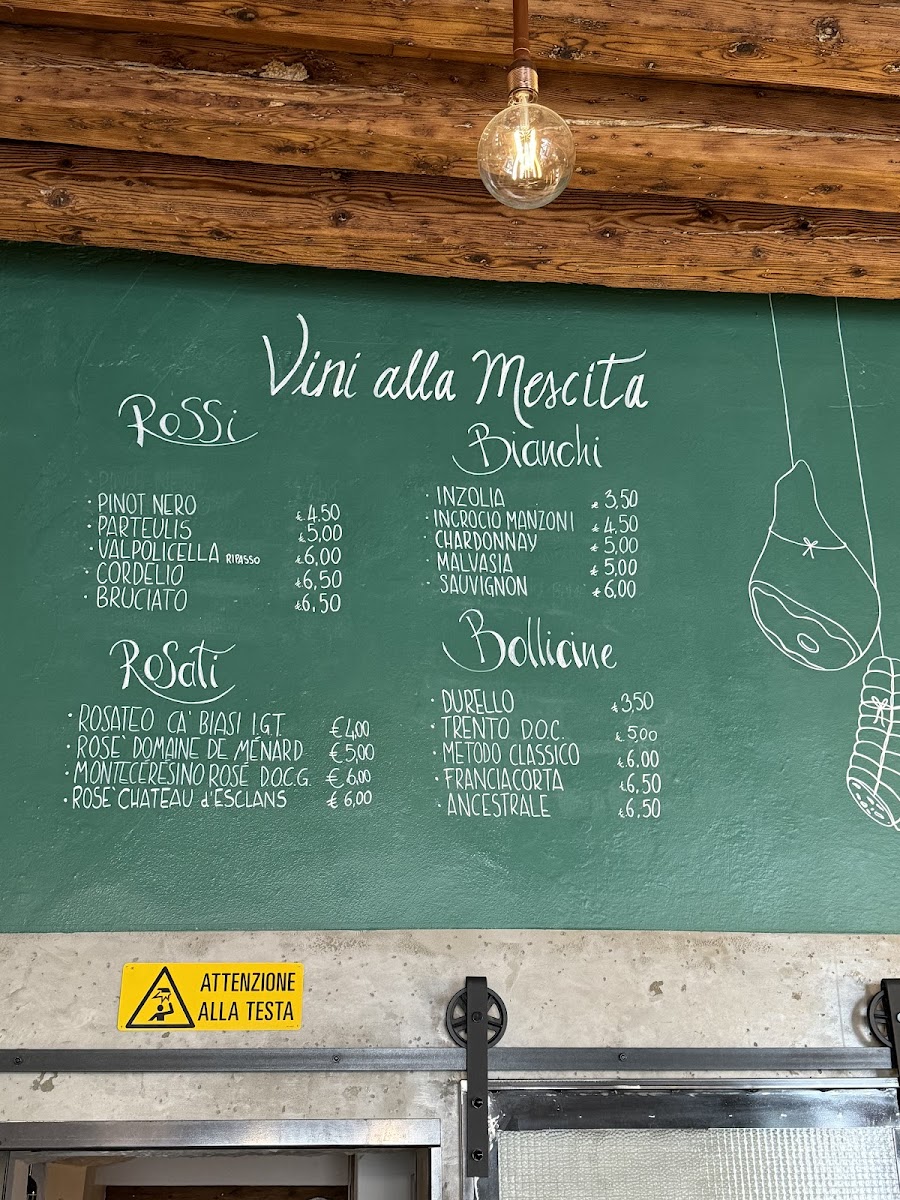 Vini alla Mescita
Rossi
· PINOT NERO €4,50
· PARTEULIS €5,00
· VALPOLICELLA RIPASSO €6,00
· CORDELIO €6,50
· BRUCIATO €6,50
Bianchi
· INZOLIA €3,50
· INCROCIO MANZONI €4,50
· CHARDONNAY €5,00
· MALVASIA €5,00
· SAUVIGNON €6,00
Rosati
· ROSATEO CA' BIASI I.G.T. €4,00
· ROSE' DOMAINE DE MÉNARD €5,00
· MONTECERESINO ROSÉ D.O.C.G. €6,00
· ROSE' CHATEAU d'ESCLANS €6,00
Bollicine
· DURELLO €3,50
· TRENTO D.O.C. €500
· METODO CLASSICO €6.00
· FRANCIACORTA €6,50
· ANCESTRALE €6,50
ATTENZIONE
ALLA TESTA